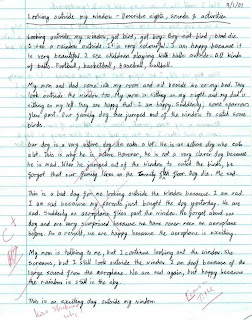 9/1/01
Looking outside my window - Describe sights, sounds & activities
Looking outside my window, got bird, got boy. Boy and bird - bird die.
I see a rainbow outside. It is very colourful. I am happy because it
is very beautiful. I see children playing with balls outside. All kinds
of balls. Football, basketball, baseball, ball.
My mom and dad come into my room and sit beside me on my bed. They
look outside the window too. My mom is sitting on my right and my dad is
sitting on my left. They are happy that I am happy. Suddenly, some sparrows
flew past. Our family dog then jumped out of the window to catch some
birds.
Our dog is a very active dog. She eats a lot. He is an active dog who eats
a lot. This is why he is active. However, he is not a very clever dog because
he is mad. When he jumped out of the window to catch the birds, he
forgot that our family lives on the floor. Dog die. Me sad.
This is a bad day for me looking outside the window because I am sad.
I am sad because my parents just bought the dog yesterday. We are
sad. Suddenly an aeroplane flies past the window. We forgot about our
dog and are very surprised because we have never seen an aeroplane
before. As a result, we are happy because the aeroplane is exciting.
My mom is talking to me, but I continue looking out the window. She
screams, but I still look outside the window. I am deaf because of the
large sound from the aeroplane. We are sad again, but happy because
the rainbow is still in the sky.
This is an exciting day outside my window.
C+